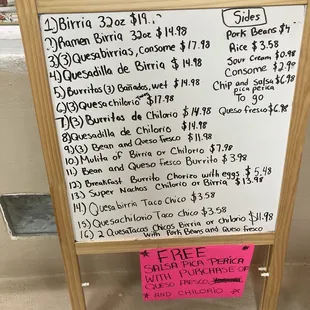 1) Birria 32oz $19.
2) Ramen Birria 32oz $14.98
3) (3) Quesabirrias, Consome $17.98
4) Quesadilla de Birria $14.98
5) Burritos (3) Bañados, wet $14.98
6) (3) Quesachilorio $17.98
7) (3) Burritos de Chilorio $14.98
8) Quesadilla de Chilorio $14.98
9) (3) Bean and Queso fresco $11.98
10) Mulita of Birria or Chilorio $7.98
11) Bean and Queso fresco Burrito $3.98
12) Breakfast Burrito Chorizo with eggs $5.98
13) Super Nachos Chilorio or Birria $13.98
14) Quesabirria Taco Chico $3.58
15) Quesachilorio Taco Chico $3.58
16) 2 QuesaTacos Chicos Birria or chilorio $11.98
with Pork Beans and Queso fresco
Sides
Pork Beans $4
Rice $3.58
Sour Cream $0.98
Consome $2.98
Chip and Salsa $6.98
pica perica
To go
Queso fresco $6.98
FREE
SALSA PICA PERICA
WITH PURCHASE OF
QUESO FRESCO
AND CHILORIO